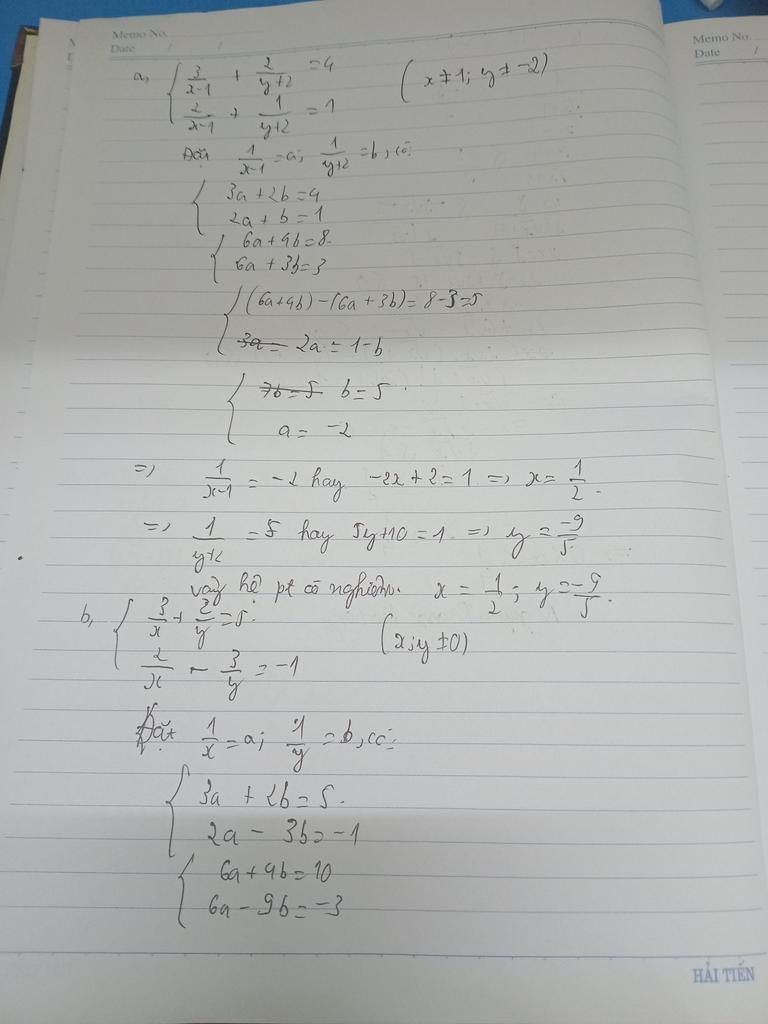 Memo No.
Date / /
Memo No.
Date /
a, { 3/(x-1) + 2/(y+2) = 4 (x ≠ 1; y ≠ -2)
2/(x-1) + 1/(y+2) = 1
Đặt 1/(x-1) = a; 1/(y+2) = b, có:
{ 3a + 2b = 4
2a + b = 1
{ 6a + 4b = 8.
6a + 3b = 3
{ (6a+4b) - (6a + 3b) = 8-3=5
3a = 2a = 1-b
{ 7b = 5 b = 5
a = -2
=> 1/(x-1) = -2 hay -2x + 2 = 1 => x = 1/2.
=> 1/(y+2) = 5 hay 5y+10 = 1 => y = -9/5
vậy hệ pt có nghiệm. x = 1/2; y = -9/5.
b, { 3/x + 2/y = 5. (x;y ≠ 0)
2/x - 3/y = -1
Đặt 1/x = a; 1/y = b, có:
{ 3a + 2b = 5.
2a - 3b = -1
{ 6a + 4b = 10
6a - 9b = -3
HẢI TIẾN